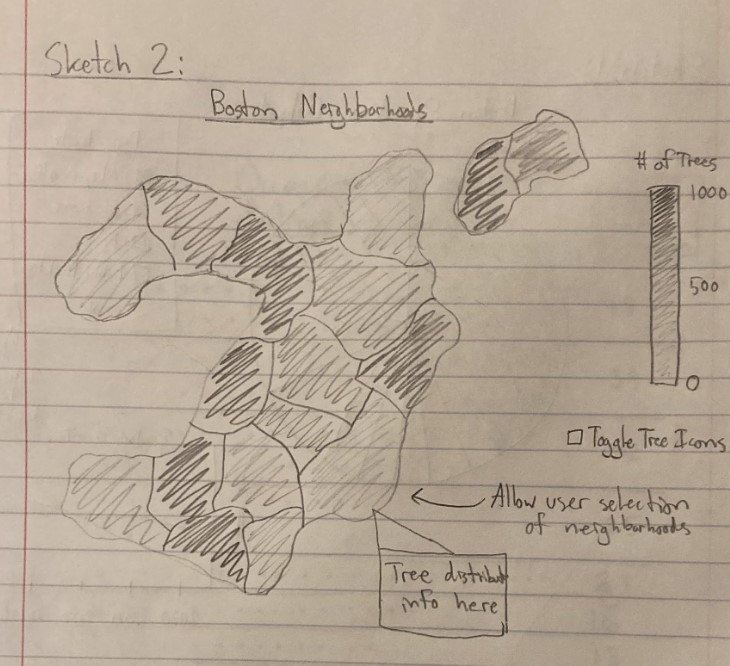 Sketch 2:
Boston Neighborhoods
# of Trees
1000
500
0
Toggle Tree Icons
Allow user selection
of neighborhoods
Tree distribut
info here